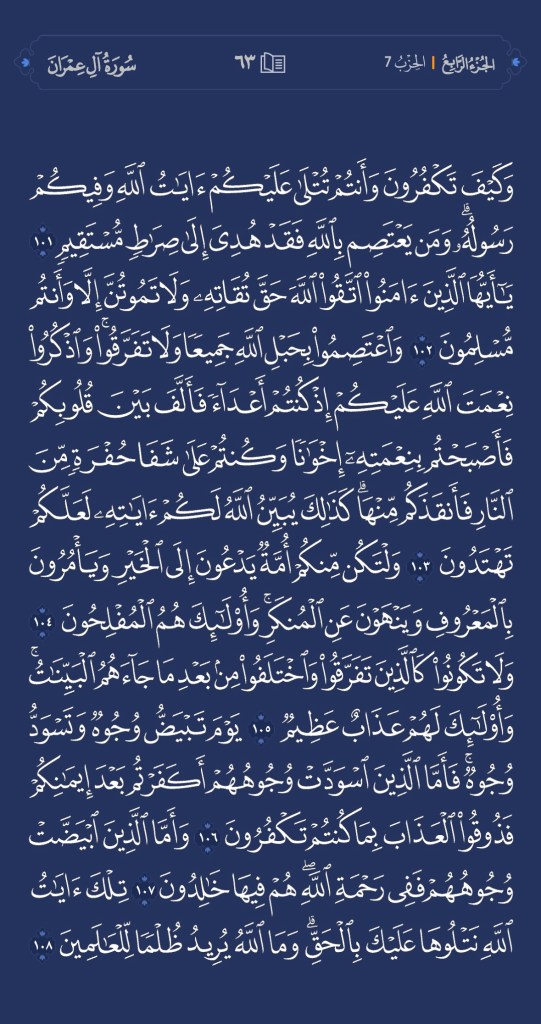 الجُزءُ الرَّابِعُ | الحِزْبُ 7
٦٣
سُورَةُ آلِ عِمْرَانَ
وَكَيْفَ تَكْفُرُونَ وَأَنتُمْ تُتْلَىٰ عَلَيْكُمْ ءَايَٰتُ ٱللَّهِ وَفِيكُمْ
رَسُولُهُۥۗ وَمَن يَعْتَصِم بِٱللَّهِ فَقَدْ هُدِىَ إِلَىٰ صِرَٰطٍ مُّسْتَقِيمٍ ١٠١
يَٰٓأَيُّهَا ٱلَّذِينَ ءَامَنُوا۟ ٱتَّقُوا۟ ٱللَّهَ حَقَّ تُقَاتِهِۦ وَلَا تَمُوتُنَّ إِلَّا وَأَنتُم
مُّسْلِمُونَ ١٠٢ وَٱعْتَصِمُوا۟ بِحَبْلِ ٱللَّهِ جَمِيعًا وَلَا تَفَرَّقُوا۟ۚ وَٱذْكُرُوا۟
نِعْمَتَ ٱللَّهِ عَلَيْكُمْ إِذْ كُنتُمْ أَعْدَآءً فَأَلَّفَ بَيْنَ قُلُوبِكُمْ
فَأَصْبَحْتُم بِنِعْمَتِهِۦٓ إِخْوَٰنًا وَكُنتُمْ عَلَىٰ شَفَا حُفْرَةٍ مِّنَ
ٱلنَّارِ فَأَنقَذَكُم مِّنْهَاۗ كَذَٰلِكَ يُبَيِّنُ ٱللَّهُ لَكُمْ ءَايَٰتِهِۦ لَعَلَّكُمْ
تَهْتَدُونَ ١٠٣ وَلْتَكُن مِّنكُمْ أُمَّةٌ يَدْعُونَ إِلَى ٱلْخَيْرِ وَيَأْمُرُونَ
بِٱلْمَعْرُوفِ وَيَنْهَوْنَ عَنِ ٱلْمُنكَرِۚ وَأُو۟لَٰٓئِكَ هُمُ ٱلْمُفْلِحُونَ ١٠٤
وَلَا تَكُونُوا۟ كَٱلَّذِينَ تَفَرَّقُوا۟ وَٱخْتَلَفُوا۟ مِنۢ بَعْدِ مَا جَآءَهُمُ ٱلْبَيِّنَٰتُۚ
وَأُو۟لَٰٓئِكَ لَهُمْ عَذَابٌ عَظِيمٌ ١٠٥ يَوْمَ تَبْيَضُّ وُجُوهٌ وَتَسْوَدُّ
وُجُوهٌۚ فَأَمَّا ٱلَّذِينَ ٱسْوَدَّتْ وُجُوهُهُمْ أَكَفَرْتُم بَعْدَ إِيمَٰنِكُمْ
فَذُوقُوا۟ ٱلْعَذَابَ بِمَا كُنتُمْ تَكْفُرُونَ ١٠٦ وَأَمَّا ٱلَّذِينَ ٱبْيَضَّتْ
وُجُوهُهُمْ فَفِى رَحْمَةِ ٱللَّهِۖ هُمْ فِيهَا خَٰلِدُونَ ١٠٧ تِلْكَ ءَايَٰتُ
ٱللَّهِ نَتْلُوهَا عَلَيْكَ بِٱلْحَقِّۗ وَمَا ٱللَّهُ يُرِيدُ ظُلْمًا لِّلْعَٰلَمِينَ ١٠٨